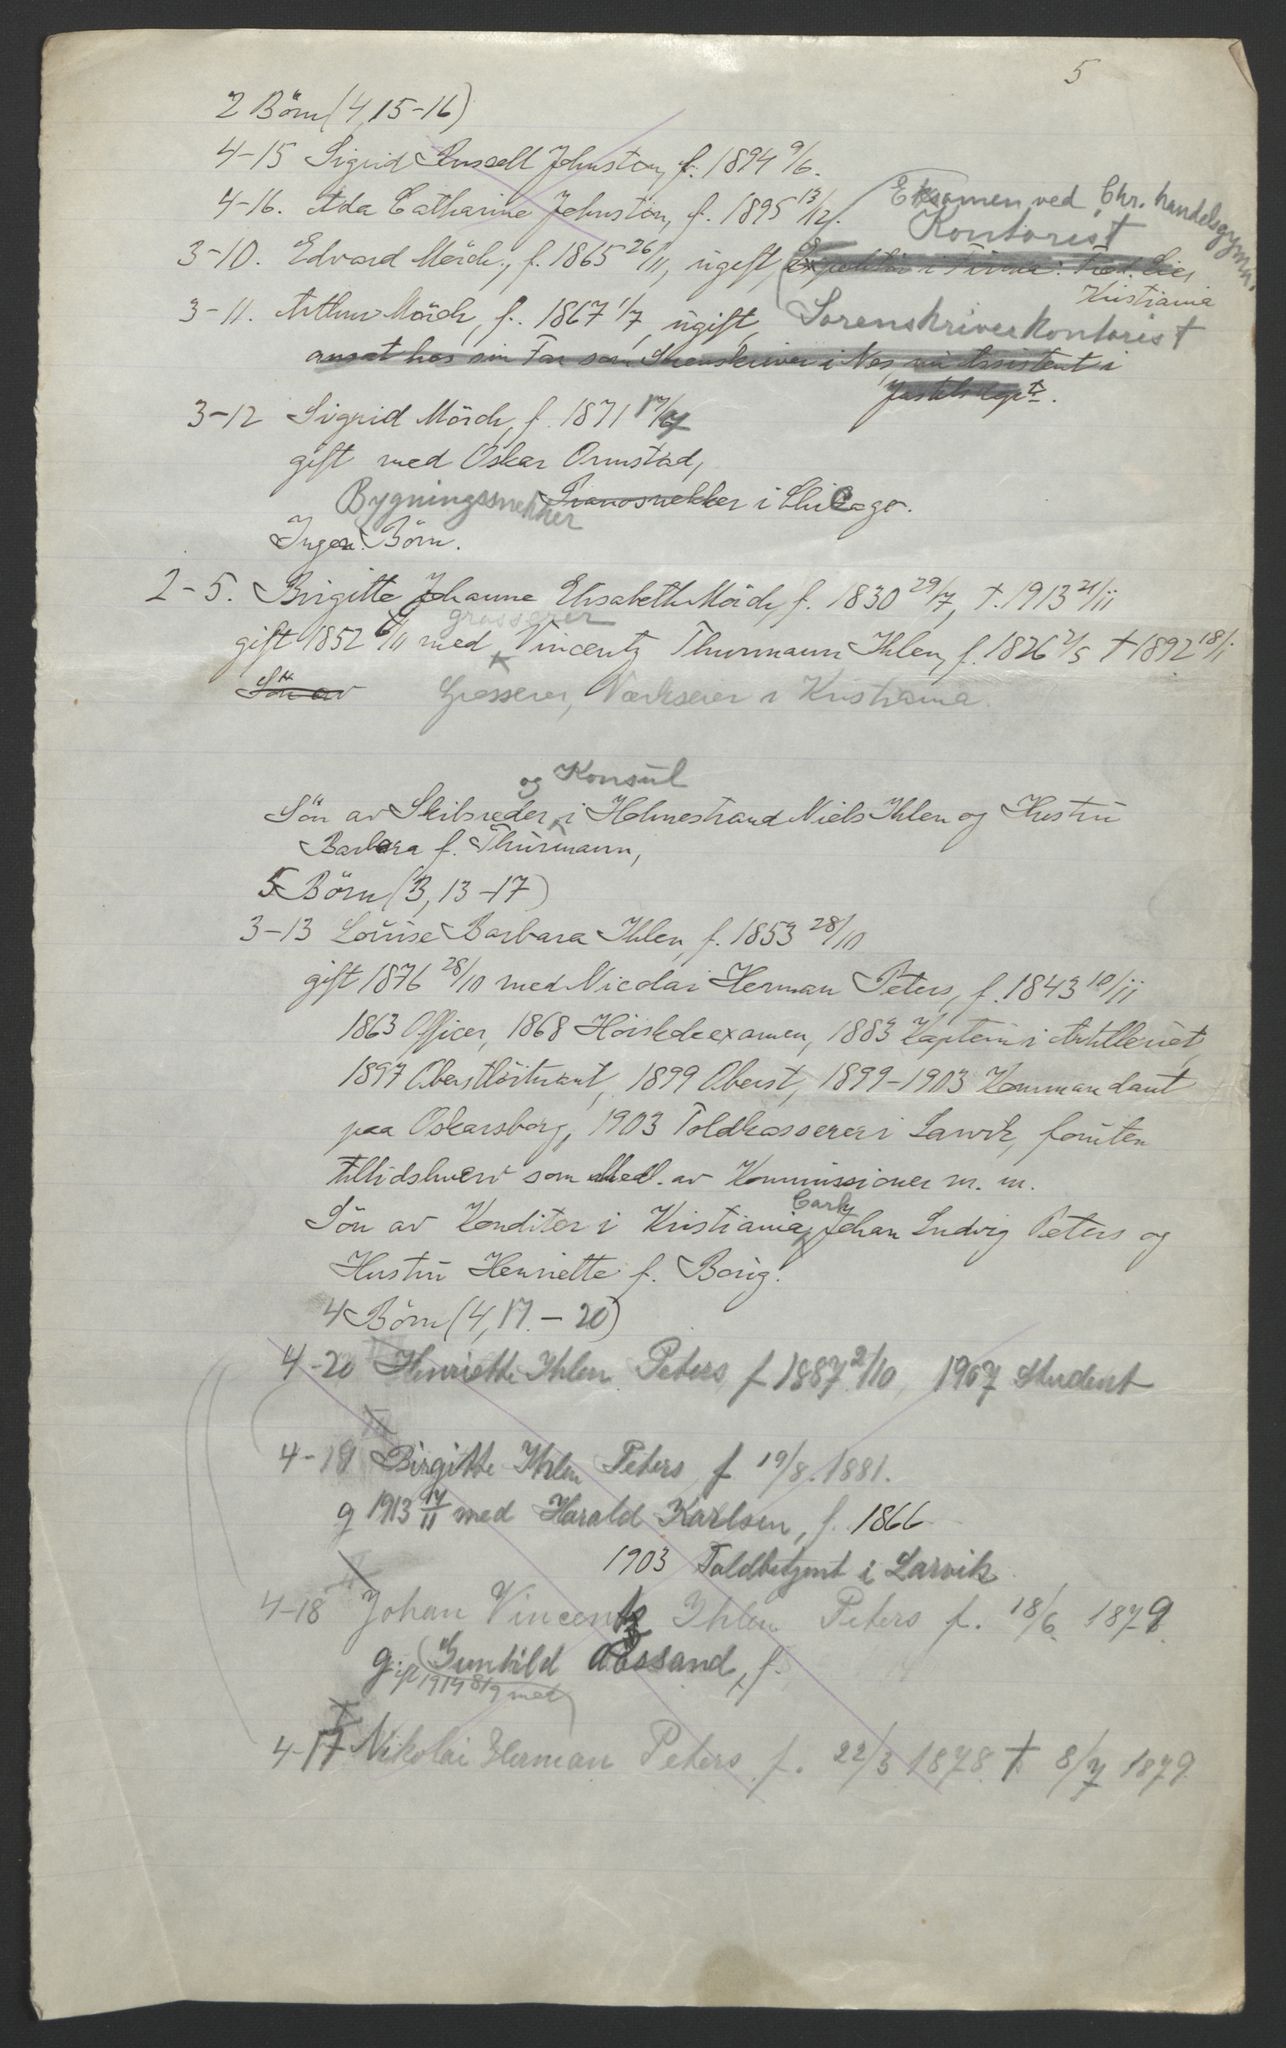 5
2 Börn (4, 15-16)
4-15 Sigrid Russell Johnston, f. 1894 9/6.
4-16. Ada Catharine Johnston, f. 1895 13/12.
Eksamen ved Chr. handelsgymn.
Kontorist
3-10. Edvard Mörch, f. 1865 26/11, ugift, Expeditör i Firma:
Kristiania
3-11. Arthur Mörch, f. 1867 1/7, ugift, Sorenskriverkontorist
ansat hos sin Far som Sorenskriver i Nes, nu Assistent i
Justitsdept.
3-12 Sigrid Mörch, f. 1871
gift med Oskar Ormstad,
Bygningssnekker Pianosnekker i Chicago.
Ingen Börn.
2-5. Birgitte Johanne Elisabeth Mörch, f. 1830 29/7, †. 1913 21/11
grosserer
gift 1852 6/11 med Vincentz Thurmann Ihlen, f. 1826 2/5 † 1892 18/1
Sön av Grosserer, Verkseier i Kristiania.
og Konsul
Sön av Skibsreder i Holmestrand Niels Ihlen og Hustru
Barbara f. Thurmann,
5 Börn (3, 13-17)
3-13 Louise Barbara Ihlen, f. 1853 28/10
gift 1876 28/10 med Nicolai Herman Peters, f. 1843 10/11
1863 Officer, 1868 Höiskoleexamen, 1883 Kaptein i Artilleriet,
1897 Oberstlöitnant, 1899 Oberst, 1899-1903 Kommandant
paa Oskarsborg, 1903 Toldkasserer i Larvik, foruten
tillidshverv som Medl. av Kommissioner m. m.
Carl
Sön av Konditor i Kristiania, Johan Ludvig Peters og
Hustru Henriette f. Borig.
4 Börn (4, 17. - 20)
4-20 Henriette Ihlen Peters f 1887 2/10, 1907 Student
4-19 Birgitte Ihlen Peters f 19/8. 1881.
g 1913 17/11 med Harald Karlsen, f. 1866
1903 Toldbetjent i Larvik
4-18 Johan Vincentz Ihlen Peters f. 18/6 1879.
gift Gunhild Røssand, f.
1914 8/9 med
4-17 Nikolai Herman Peters f. 22/3 1878. † 8/7 1879.